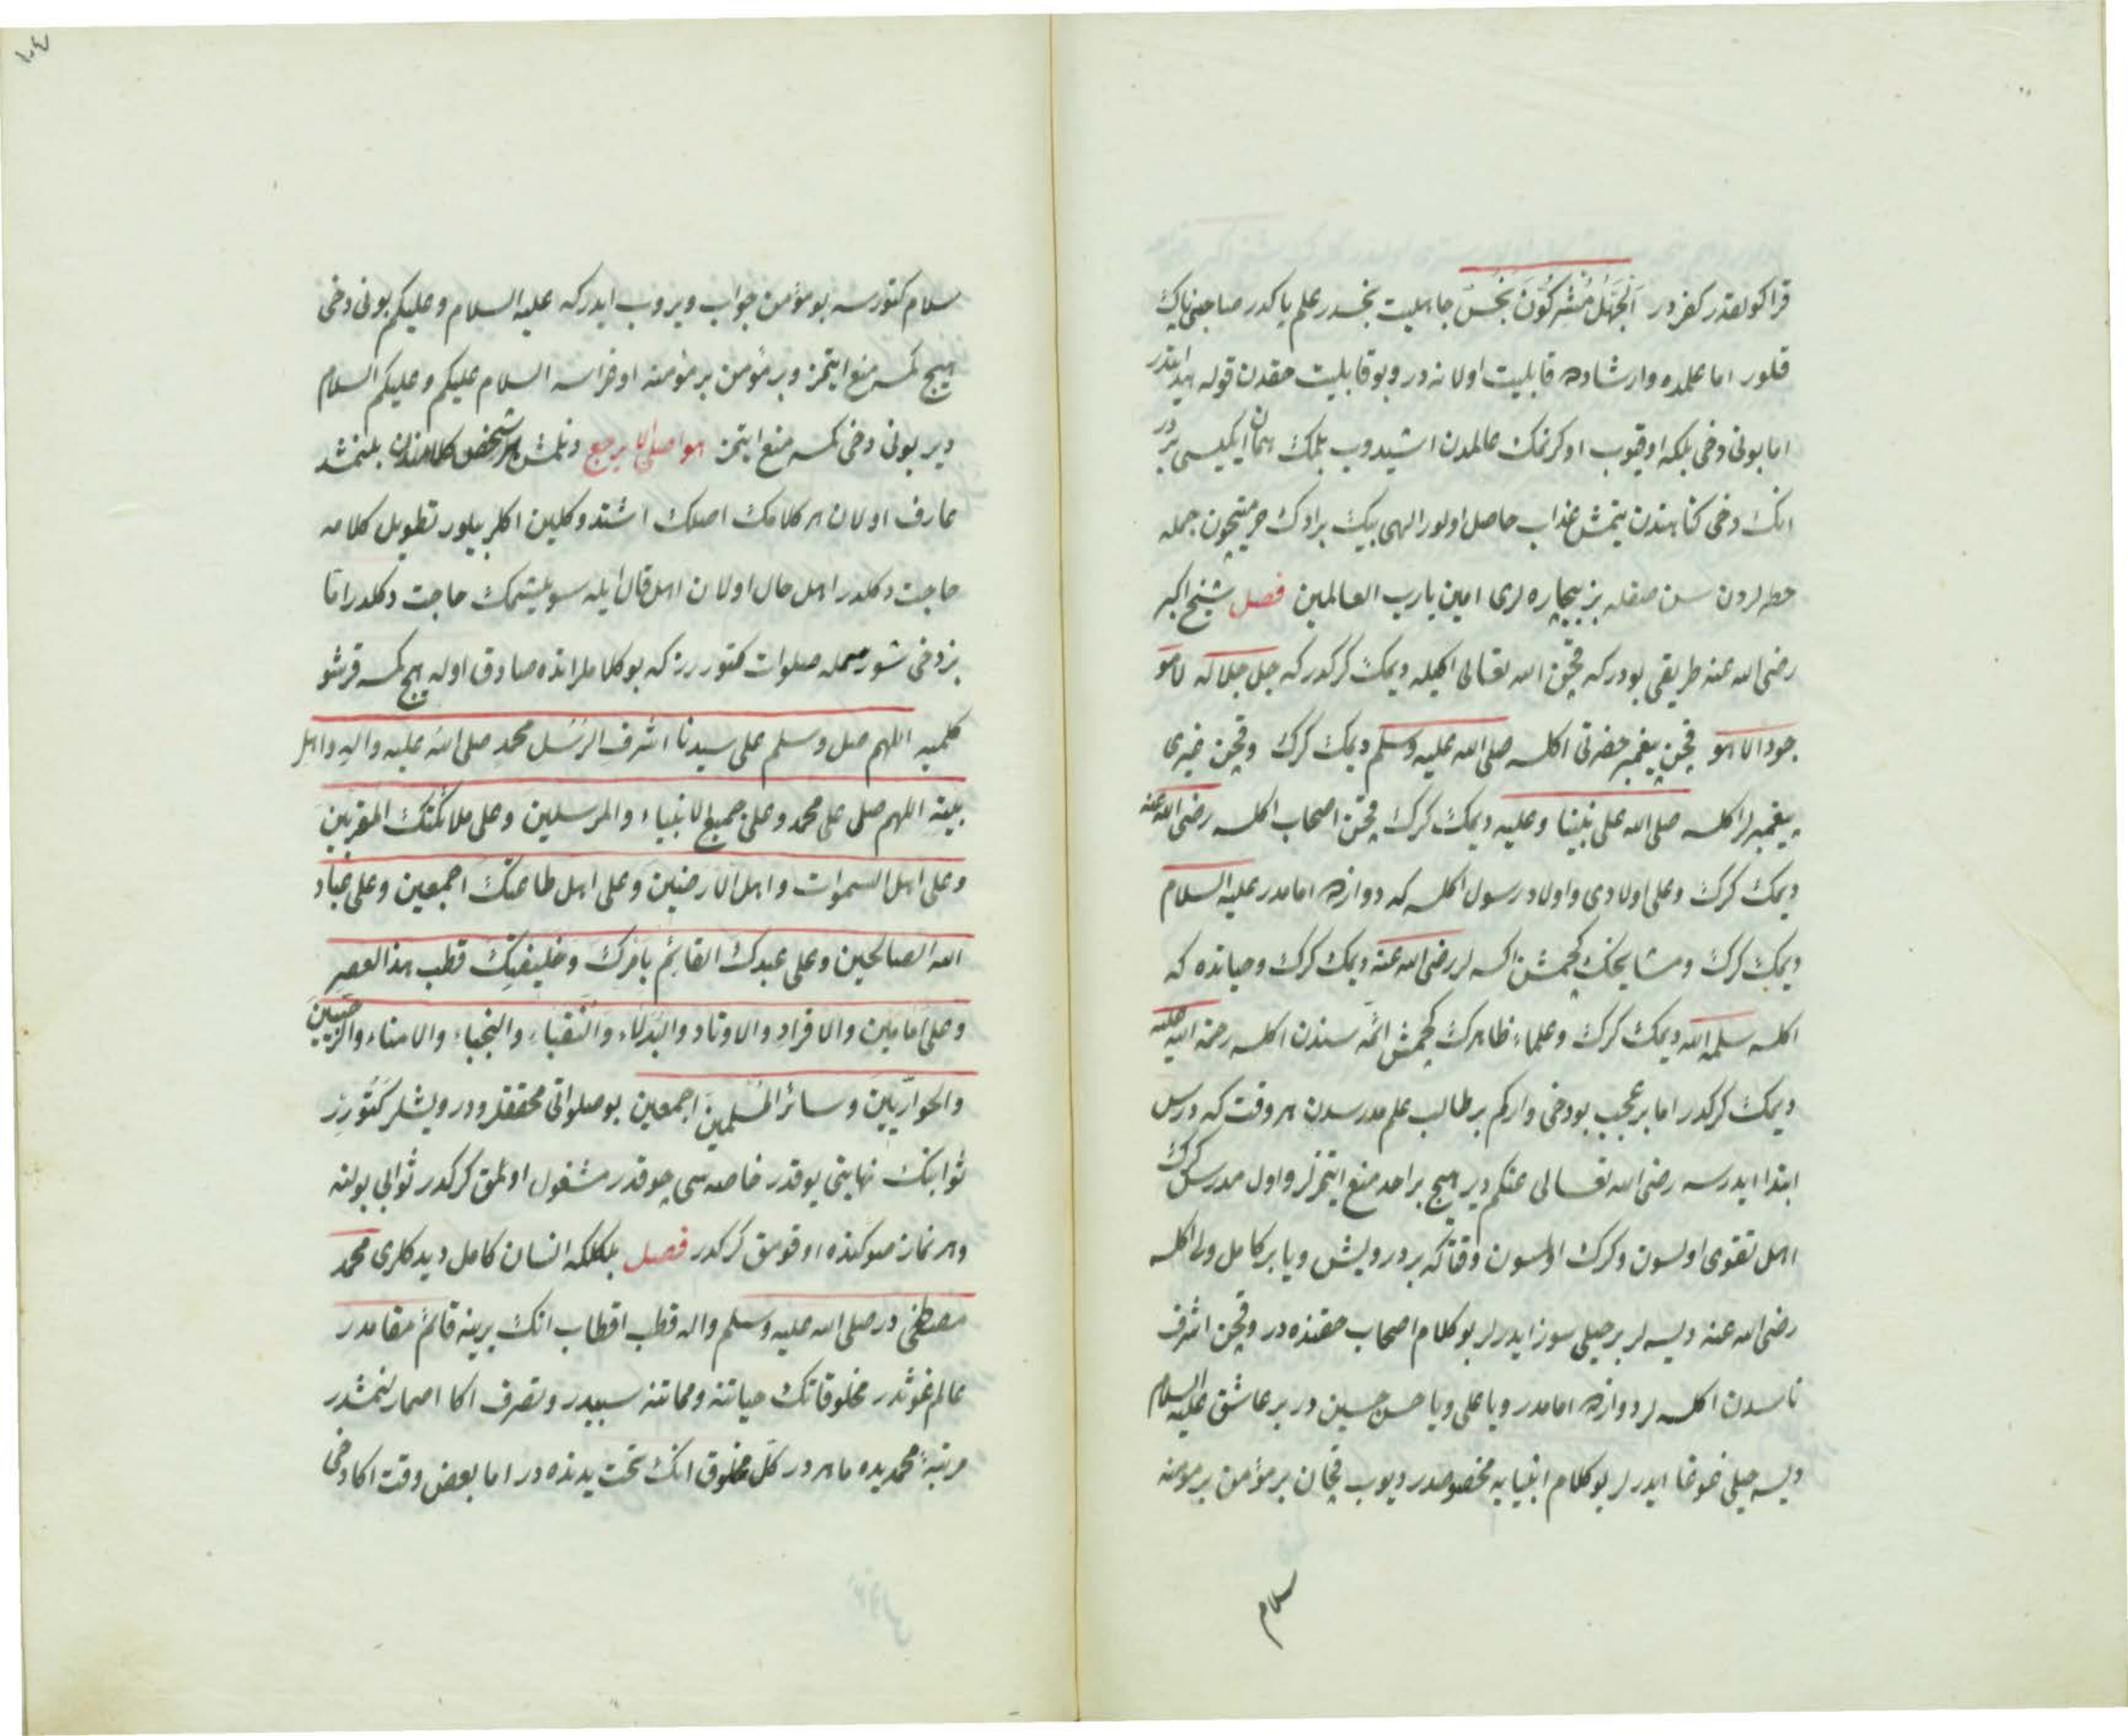 قراكولقدر كفردر اَلْجَهْلُ مُشْرِكُونَ نَجَسٌ جاهليت نجسدر علم پاكدر صاحبنى پاك
قلور اما علمده وارشاده قابليت اولانه در وبو قابليت حقدن قوله هدايتدر
اما بونى دخى بلكه اوقيوب اوكرنمك عالمدن اشيدوب بلمك همان ايكيسى بردر
انك دخى كناهندن يتمش عذاب حاصل اولور الهى بيك برادك حرمتيچون جمله
خطه لردن سن صقله بز بيچاره لرى امين يارب العالمين فصل شيخ اكبر
رضى الله عنه طريقى بودركه قچن الله تعالى اكيله ديمك كركدركه جل جلاله لا هو
جود الا هو قچن پيغمبر حضرتى اكلسه صلى الله عليه وسلم ديمك كرك وقچن غيرى
پيغمبر لر اكلسه صلى الله على نبينا وعليه ديمك كرك قچن اصحاب اكلسه رضى الله عنه
ديمك كرك وعلى اولادى واولاد رسول اكلسه كه دوازده امامدر عليه السلام
ديمك كرك ومشايخك كچمش اكسه لر رضى الله عنه ديمك كرك وحياتده كه
اكلسه سلمه الله ديمك كرك وعلماء ظاهرك كچمش ائمه سندن اكلسه رحمة الله عليه
ديمك كركدر اما بر عجب بودخى واركم بر طالب علم مدرسدن هر وقت كه درس
ابتدا ايدرسه رضى الله تعالى عنكم دير هيچ بر احد منع ايتمزلر واول مدرس كرك
اهل تقوى اولسون وكرك اولمسون وقتاكه بر درويش ويا بر كامل ولى اكلسه
رضى الله عنه ديسه لر بر خيلى سوز ايدرلر بو كلام اصحاب حقنده در وقچن اشرف
ناسدن اكلسه لر دوازده امامدر ويا على ويا حسن حسين در بر عاشق عليه السلام
ديسه خيلى غوغا ايدرلر بو كلام انبيايه مخصوصدر ديوب قچان بر مؤمن بر مؤمنه
سلام
١٠٤
سلام كتورسه بو مؤمن جواب ويروب ايدركه عليه السلام وعليكم بونى دخى
هيچ كمسه منع ايتمز وبر مؤمن بر مؤمنه اوغراسه السلام عليكم وعليكم السلام
دير بونى دخى كمسه منع ايتمز هو اصلى لا يرجع دنلمش هر شخص كلامندن بلنمشدر
عارف اولان هر كلامك اصلك اشتدوكلين اكلر بيلور تطويل كلامه
حاجت دكلدر اهل حال اولان اهل قال ايله سويلشمك حاجت دكلدر اما
بز دخى شور محله صلوات كتوررز كه بو كلاملرانده صادق اوله هيچ كمسه قرشو
كلميه اللهم صل وسلم على سيدنا اشرف الرسل محمد صلى الله عليه واله واهل
بيته اللهم صلى على محمد وعلى جميع الانبياء والمرسلين وعلى ملائكتك المقربين
وعلى اهل السموات واهل الارضين وعلى اهل طاعتك اجمعين وعلى عباد
الله الصالحين وعلى عبدك القائم بامرك وخليفتك قطب هذا العصر
وعلى امامين والافراد والاوتاد والبدلاء والنقباء والنجباء والامناء والرجبيين
والحواريين وسائر المسلمين اجمعين بو صلواتى محققلر ودرويشلر كتورر
ثوابنك نهايتى يوقدر خاصه سى چوقدر مشغول اولمق كركدر ثوابى بولنه
وهر نماز صوكنده اوقومق كركدر فصل بلكلكه انسان كامل ديدكلرى محمد
مصطفى در صلى الله عليه وسلم واله قطب اقطاب انك يرينه قائم مقامدر
عالم غوثدر مخلوقاتك حياتنه ومماتنه سببدر وتصرف اكا اصمارلنمشدر
مرتبۀ محمديده ماهر در كل مخلوق انك تحت يدنده در اما بعض وقت اكا دخى